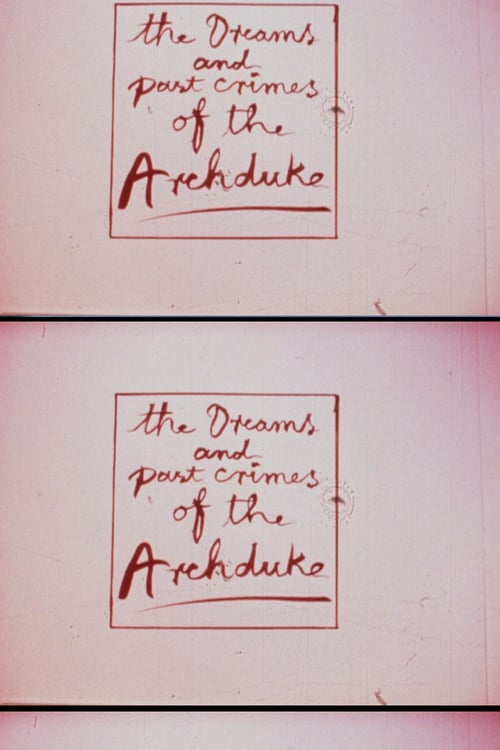 the Dreams
and
past crimes
of the
Archduke
the Dreams
and
past crimes
of the
Archduke